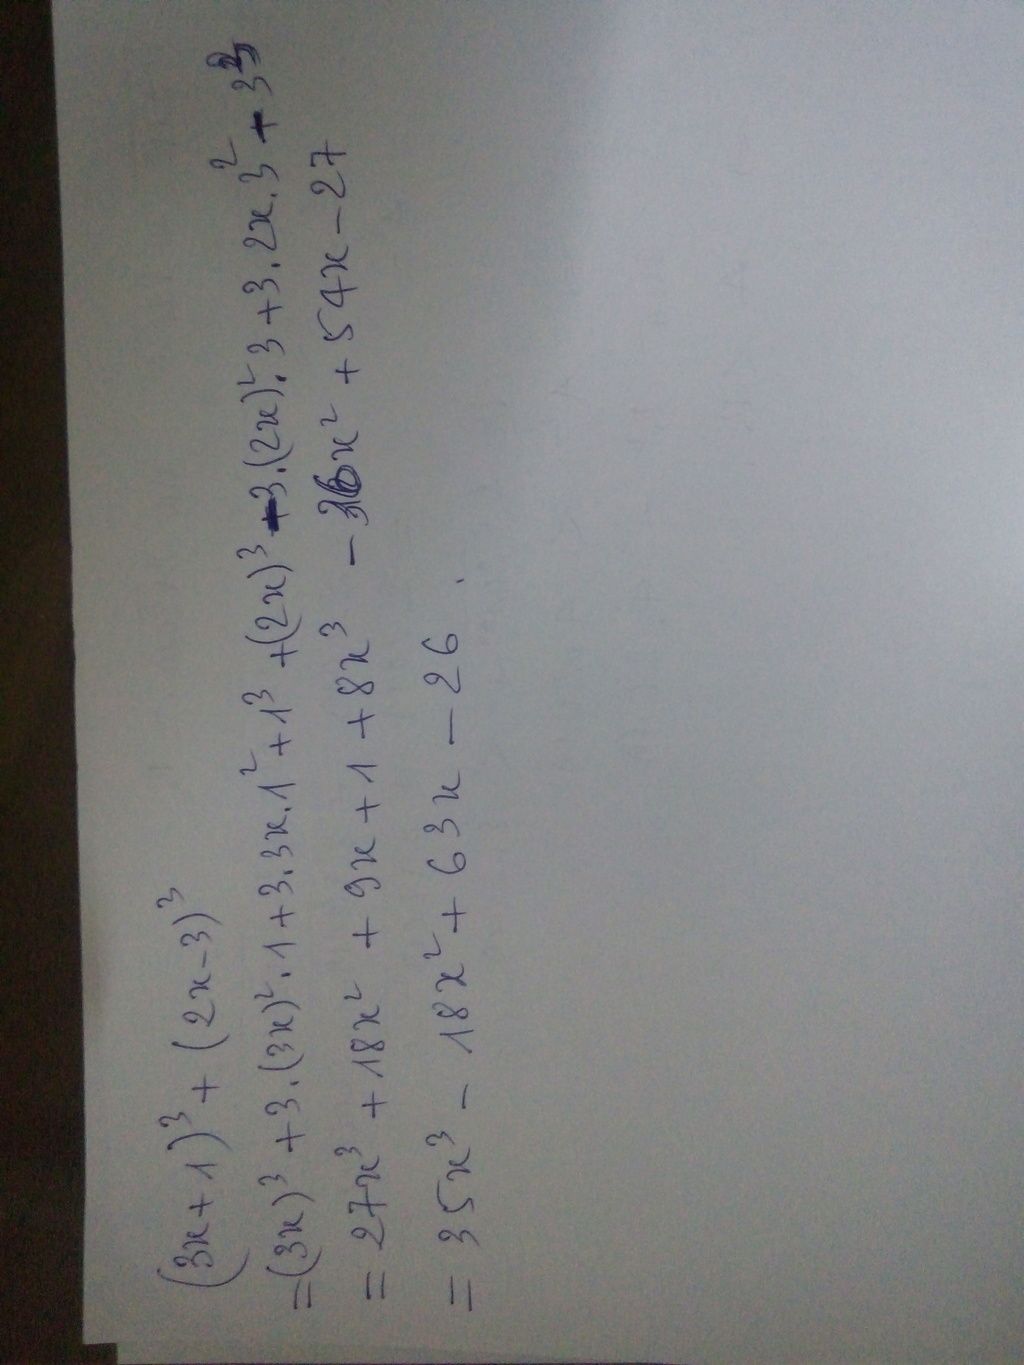 (3x+1)³ + (2x-3)³
=(3x)³ +3.(3x)².1+3.3x.1²+1³ +(2x)³ -3.(2x)².3+3.2x.3² - 3³
= 27x³ + 18x² + 9x + 1 + 8x³ - 36x² + 54x - 27
= 35x³ - 18x² + 63x - 26